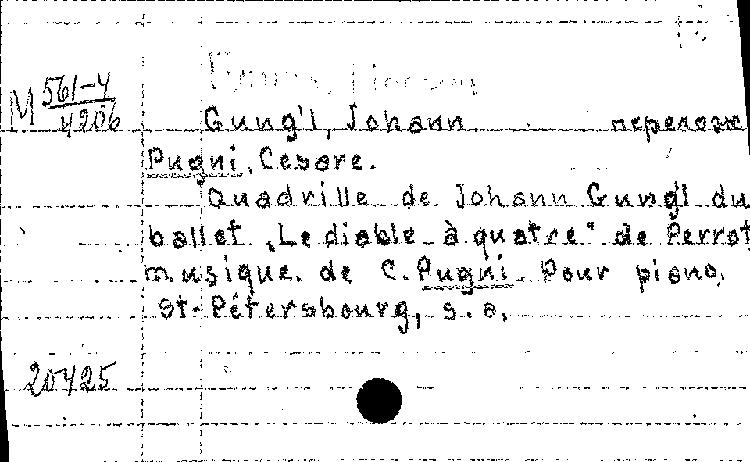 М 561-4
4206
Gung'l, Johann перелож
Pugni, Cesare.
Quadrille de Johann Gung'l du
ballet „Le diable à quatre" de Perrot
musique de C. Pugni. Pour piano.
St-Pétersbourg, s. a.
20425